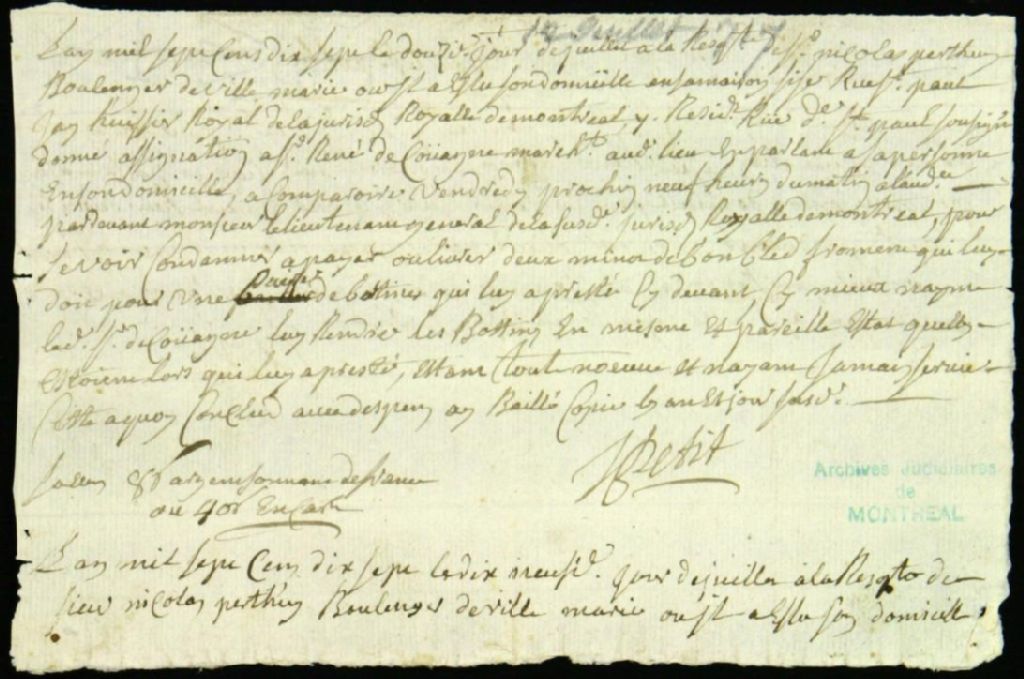 12 Juillet 1717
Lan mil sept Cens dix sept le douzie. Jour de juillet a la Reqte. de sr. nicolas perthuy
Boulenger de ville marie ou Jl a Eslu son domicille en sa maison sise Rue st. paul
Jay huissier Royal de la jurison Royalle de montreal y. Residt. Rue d. st. paul sousigné
donné assignation a sr. René de Coüagne marcht. aud. lieu En parlant a sa personne
En son domicille, a Comparoire Vendredy prochin neuf heures du matin a laud.ce
pardevant monsieur le lieutenant general de la susd. jurison Royalle de montreal, pour
se voir Condamner a payer ou livrer deux minos de bon bled froment qui luy
doit pour Une paire de bottines qui luy a presté Cy devant, Cy mieux nayme
led. sr. de Coüagne luy Rendre les Bottines En mesme Et pareille Estat quelles
estoient lors qui luy a presté, estant toute neuve et nayant Jamais servie
Cest a quoy Conclud avec despens ay Baillé Copie les an Et jour susd.
JPetit
argent monnaie de france
ou 40s En Carte
Archives Judiciaires
de
MONTREAL
Lan mil sept Cens dix sept le dix neufie. Jour de juillet a la Reqte de
sieur nicolas perthuy Boulenger de ville marie ou Jl a Eslu son domicille